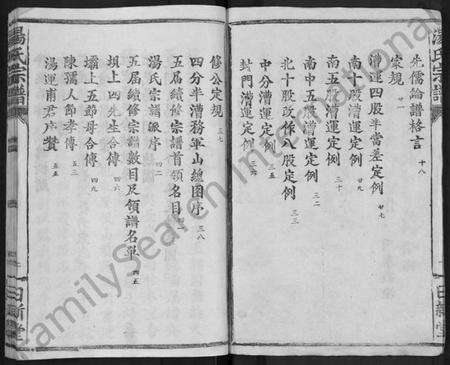 湯氏宗譜
先儒論譜格言 十八
宗規 廿一
漕運四股半當差定例 廿七
南十股漕運定例 廿九
南五股漕運定例 三十
南中五股漕運定例 三二
北十股改作八股定例 三三
中分漕運定例
封門漕運定例 三六
日新堂
修公定規 三七
四分半漕務軍山總圖序 三八
五屆續修宗譜首領名目
湯氏宗譜派序 四二
五屆續修宗譜數目及領譜名單 四五
垻上四先生合傳 四六
壩上五節母合傳 四九
陳孺人節孝傳 五三
湯運甫君序贊 五五
湯氏宗譜
日新堂
FamilySearch International